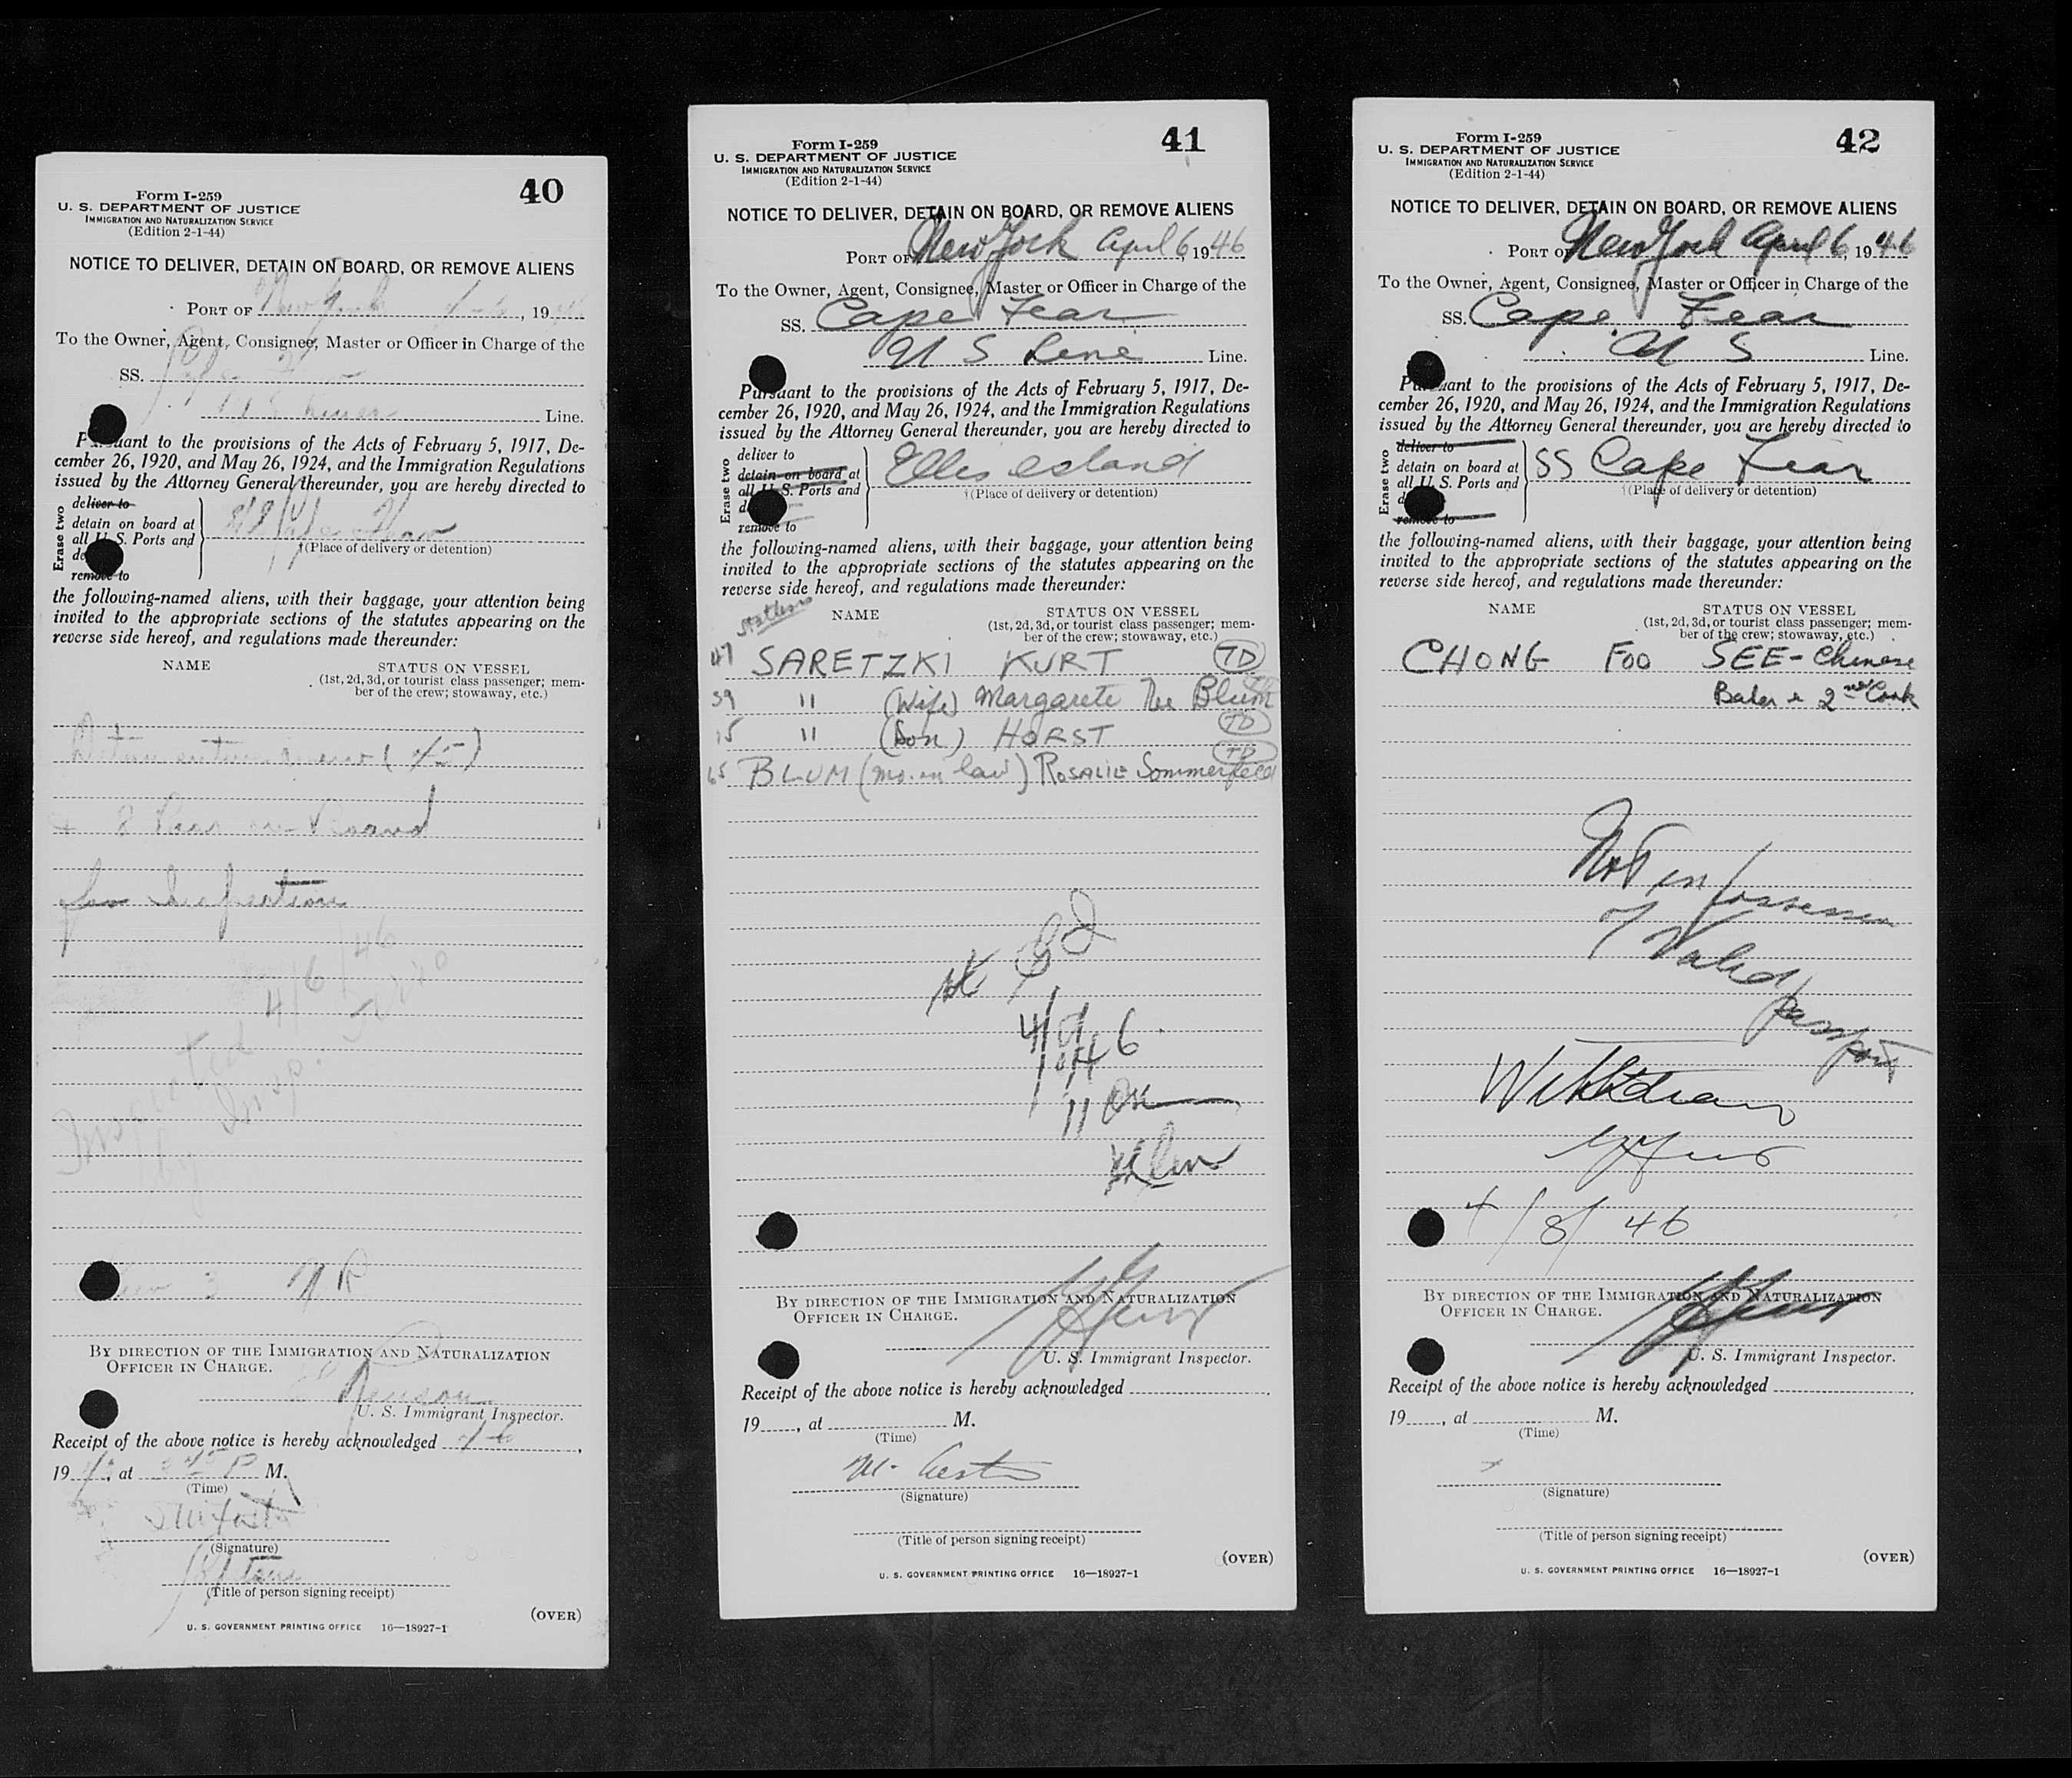 40
Form I-259
U. S. DEPARTMENT OF JUSTICE
IMMIGRATION AND NATURALIZATION SERVICE
(Edition 2-1-44)
NOTICE TO DELIVER, DETAIN ON BOARD, OR REMOVE ALIENS
PORT OF New York 4-6, 19
To the Owner, Agent, Consignee, Master or Officer in Charge of the
SS. Cape Fear
U S Lines Line.
Pursuant to the provisions of the Acts of February 5, 1917, De-
cember 26, 1920, and May 26, 1924, and the Immigration Regulations
issued by the Attorney General thereunder, you are hereby directed to
Erase two
deliver to
detain on board at
all U. S. Ports and
remove to
SS Cape Fear
†(Place of delivery or detention)
the following-named aliens, with their baggage, your attention being
invited to the appropriate sections of the statutes appearing on the
reverse side hereof, and regulations made thereunder:
NAME
STATUS ON VESSEL
(1st, 2d, 3d, or tourist class passenger; mem-
ber of the crew; stowaway, etc.)
Detain entire crew (45)
+ 8 Pass on Board
for Inspection
Inspected 4/6/46
by Insp.
3 NR
BY DIRECTION OF THE IMMIGRATION AND NATURALIZATION
OFFICER IN CHARGE.
U. S. Immigrant Inspector.
Receipt of the above notice is hereby acknowledged 4-6,
19 46, at 45 P M.
(Time)
(Signature)
Captain
(Title of person signing receipt)
(OVER)
U. S. GOVERNMENT PRINTING OFFICE 16—18927-1
41
Form I-259
U. S. DEPARTMENT OF JUSTICE
IMMIGRATION AND NATURALIZATION SERVICE
(Edition 2-1-44)
NOTICE TO DELIVER, DETAIN ON BOARD, OR REMOVE ALIENS
PORT OF New York April 6, 1946
To the Owner, Agent, Consignee, Master or Officer in Charge of the
SS. Cape Fear
U S Line Line.
Pursuant to the provisions of the Acts of February 5, 1917, De-
cember 26, 1920, and May 26, 1924, and the Immigration Regulations
issued by the Attorney General thereunder, you are hereby directed to
Erase two
deliver to
detain on board at
all U. S. Ports and
remove to
Ellis Island
†(Place of delivery or detention)
the following-named aliens, with their baggage, your attention being
invited to the appropriate sections of the statutes appearing on the
reverse side hereof, and regulations made thereunder:
NAME
STATUS ON VESSEL
(1st, 2d, 3d, or tourist class passenger; mem-
ber of the crew; stowaway, etc.)
Stateless
47 SARETZKI KURT TD
39 " (Wife) Margarete Nee Blum
15 " (Son) HORST TD
65 BLUM (mo. in law) ROSALIE Sommerfeld TD
BY DIRECTION OF THE IMMIGRATION AND NATURALIZATION
OFFICER IN CHARGE.
U. S. Immigrant Inspector.
Receipt of the above notice is hereby acknowledged
19, at M.
(Time)
(Signature)
(Title of person signing receipt)
(OVER)
U. S. GOVERNMENT PRINTING OFFICE 16—18927-1
42
Form I-259
U. S. DEPARTMENT OF JUSTICE
IMMIGRATION AND NATURALIZATION SERVICE
(Edition 2-1-44)
NOTICE TO DELIVER, DETAIN ON BOARD, OR REMOVE ALIENS
PORT OF New York April 6 1946
To the Owner, Agent, Consignee, Master or Officer in Charge of the
SS. Cape Fear
U S Line.
Pursuant to the provisions of the Acts of February 5, 1917, De-
cember 26, 1920, and May 26, 1924, and the Immigration Regulations
issued by the Attorney General thereunder, you are hereby directed to
Erase two
deliver to
detain on board at
all U. S. Ports and
remove to
SS Cape Fear
†(Place of delivery or detention)
the following-named aliens, with their baggage, your attention being
invited to the appropriate sections of the statutes appearing on the
reverse side hereof, and regulations made thereunder:
NAME
STATUS ON VESSEL
(1st, 2d, 3d, or tourist class passenger; mem-
ber of the crew; stowaway, etc.)
CHONG FOO SEE - Chinese
Baker & 2nd Cook
Not in possession
of Valid
passport
Withdrawn
4/8/46
BY DIRECTION OF THE IMMIGRATION AND NATURALIZATION
OFFICER IN CHARGE.
U. S. Immigrant Inspector.
Receipt of the above notice is hereby acknowledged
19, at M.
(Time)
x
(Signature)
(Title of person signing receipt)
(OVER)
U. S. GOVERNMENT PRINTING OFFICE 16—18927-1